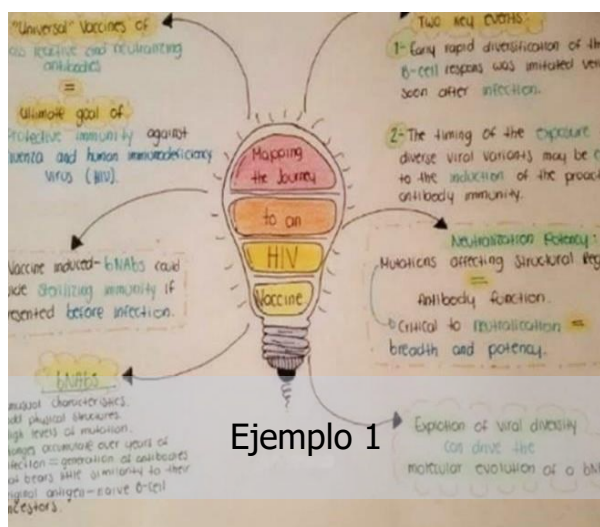 "Universal" Vaccines of
reactive and neutralizing
antibodies
=
Ultimate goal of
protective immunity against
and human immunodeficiency
virus (HIV).
Vaccine induced-bNAbs could
sterilizing immunity if
presented before infection.
bNAbs
characteristics.
physical structures.
levels of mutation.
accumulate over years of
= generation of antibodies
bears little similarity to their
antigen-naive B-cell
Mapping
the Journey
to an
HIV
Vaccine
Two key events:
1- Early rapid diversification of the
B-cell respons was imitated
soon after infection.
2- The timing of the exposure
diverse viral variants may be
to the induction of the
antibody immunity.
Neutralization Potency:
Mutations affecting structural
=
Antibody function.
Critical to neutralization =
breadth and potency.
of viral diversity
can drive the
molecular evolution of a
Ejemplo 1